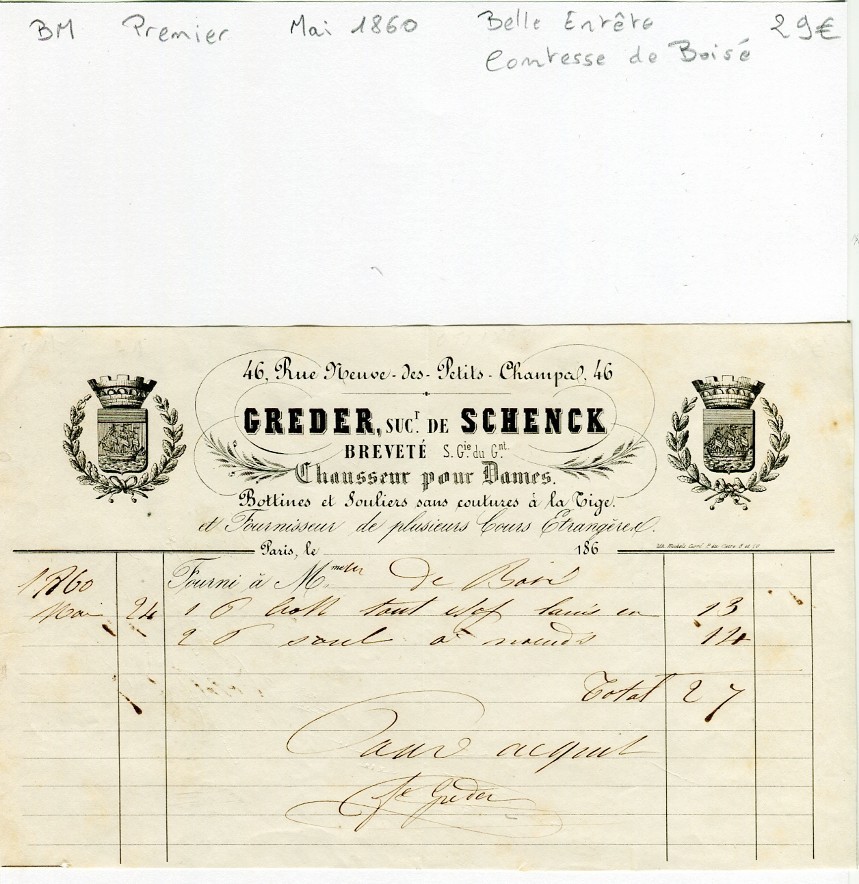 BM Premier Mai 1860 Belle Entête 29€
Comtesse de Boisé
46, Rue Neuve-des-Petits-Champs, 46
GREDER, SUCr. DE SCHENCK
BREVETÉ S.Gie du Gnt.
Chausseur pour Dames.
Bottines et Souliers sans coutures à la Tige.
et Fournisseur de plusieurs Cours Etrangères.
Paris, le 186
1860 Fourni à Mme de
Mai 24 1 13
2 soul à nœuds 14
Total 27
Pour acquit
Greder